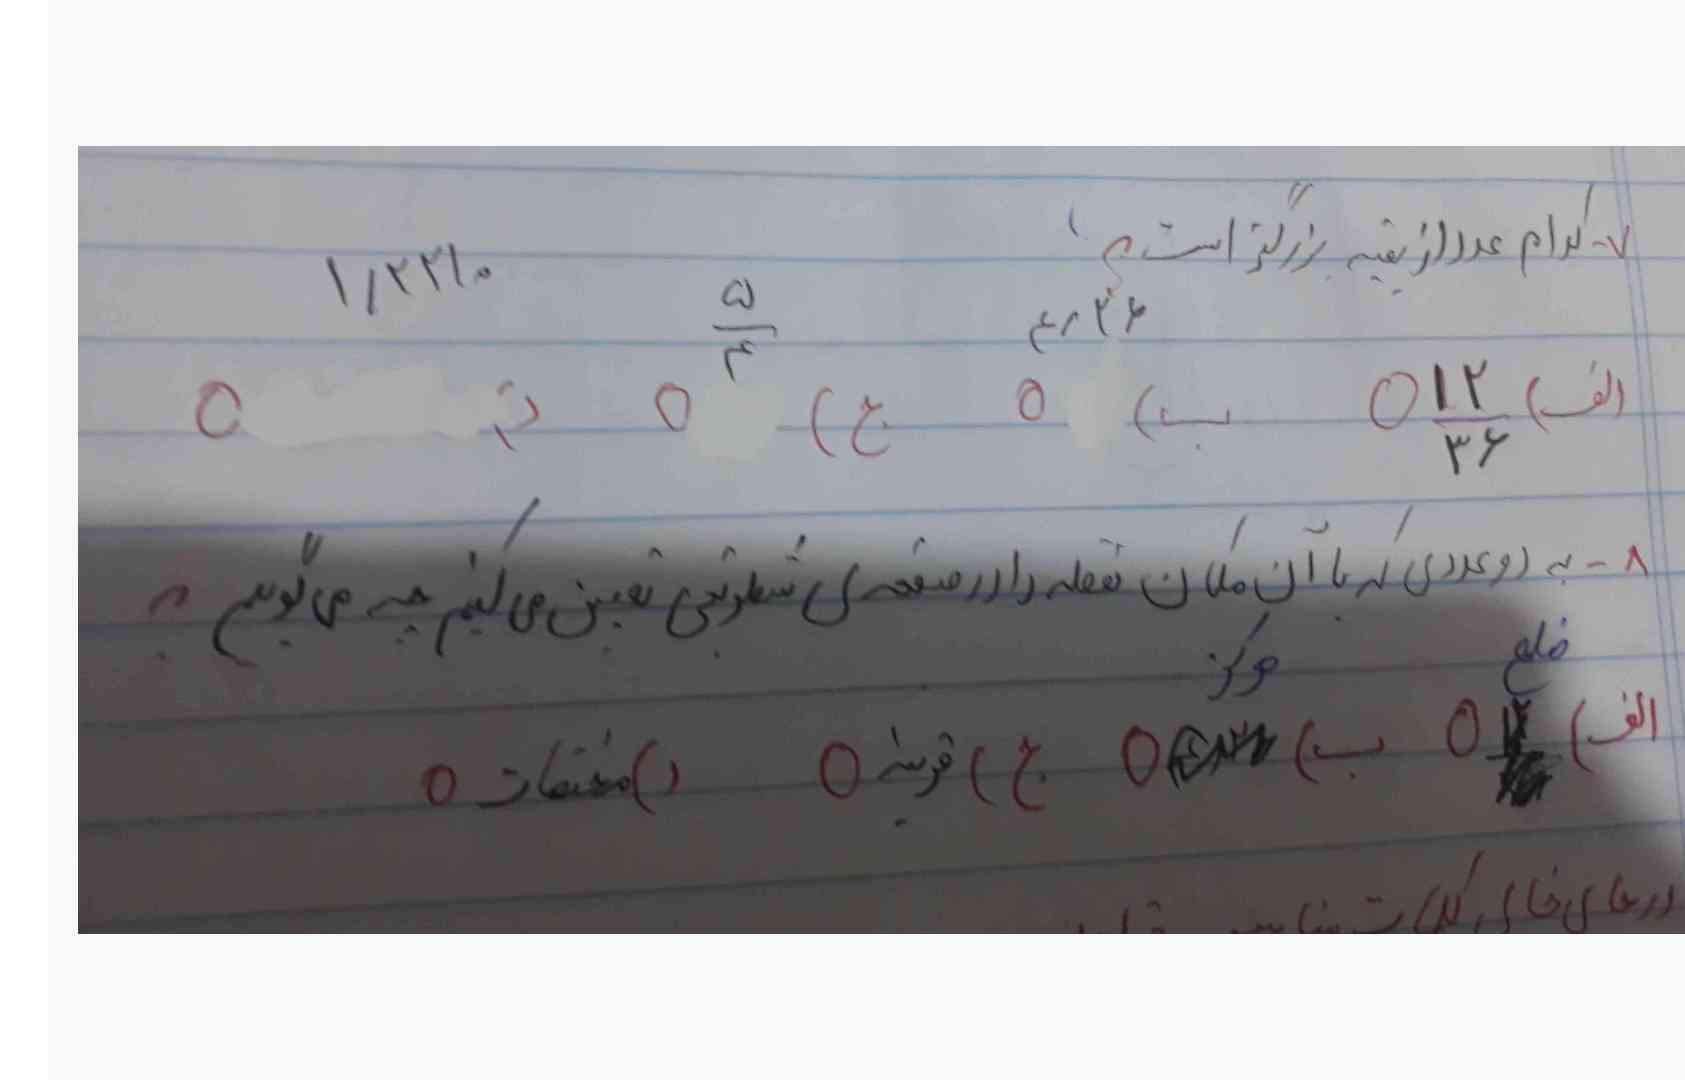 ۷- کدام عدد از بقیه بزرگتر است؟
۴/۲۶ ۵/۴ ۱/۲۲۱۰
الف) ۱۲/۳۶ ب) ج) د)
۸- به دو عددی که با آن مکان نقطه را در صفحه ی شطرنجی تعیین می کنیم چه می گوییم ؟
ضلع مرکز
الف) ب) ج) قرینه د) مختصات
در جای خالی کلمات مناسب